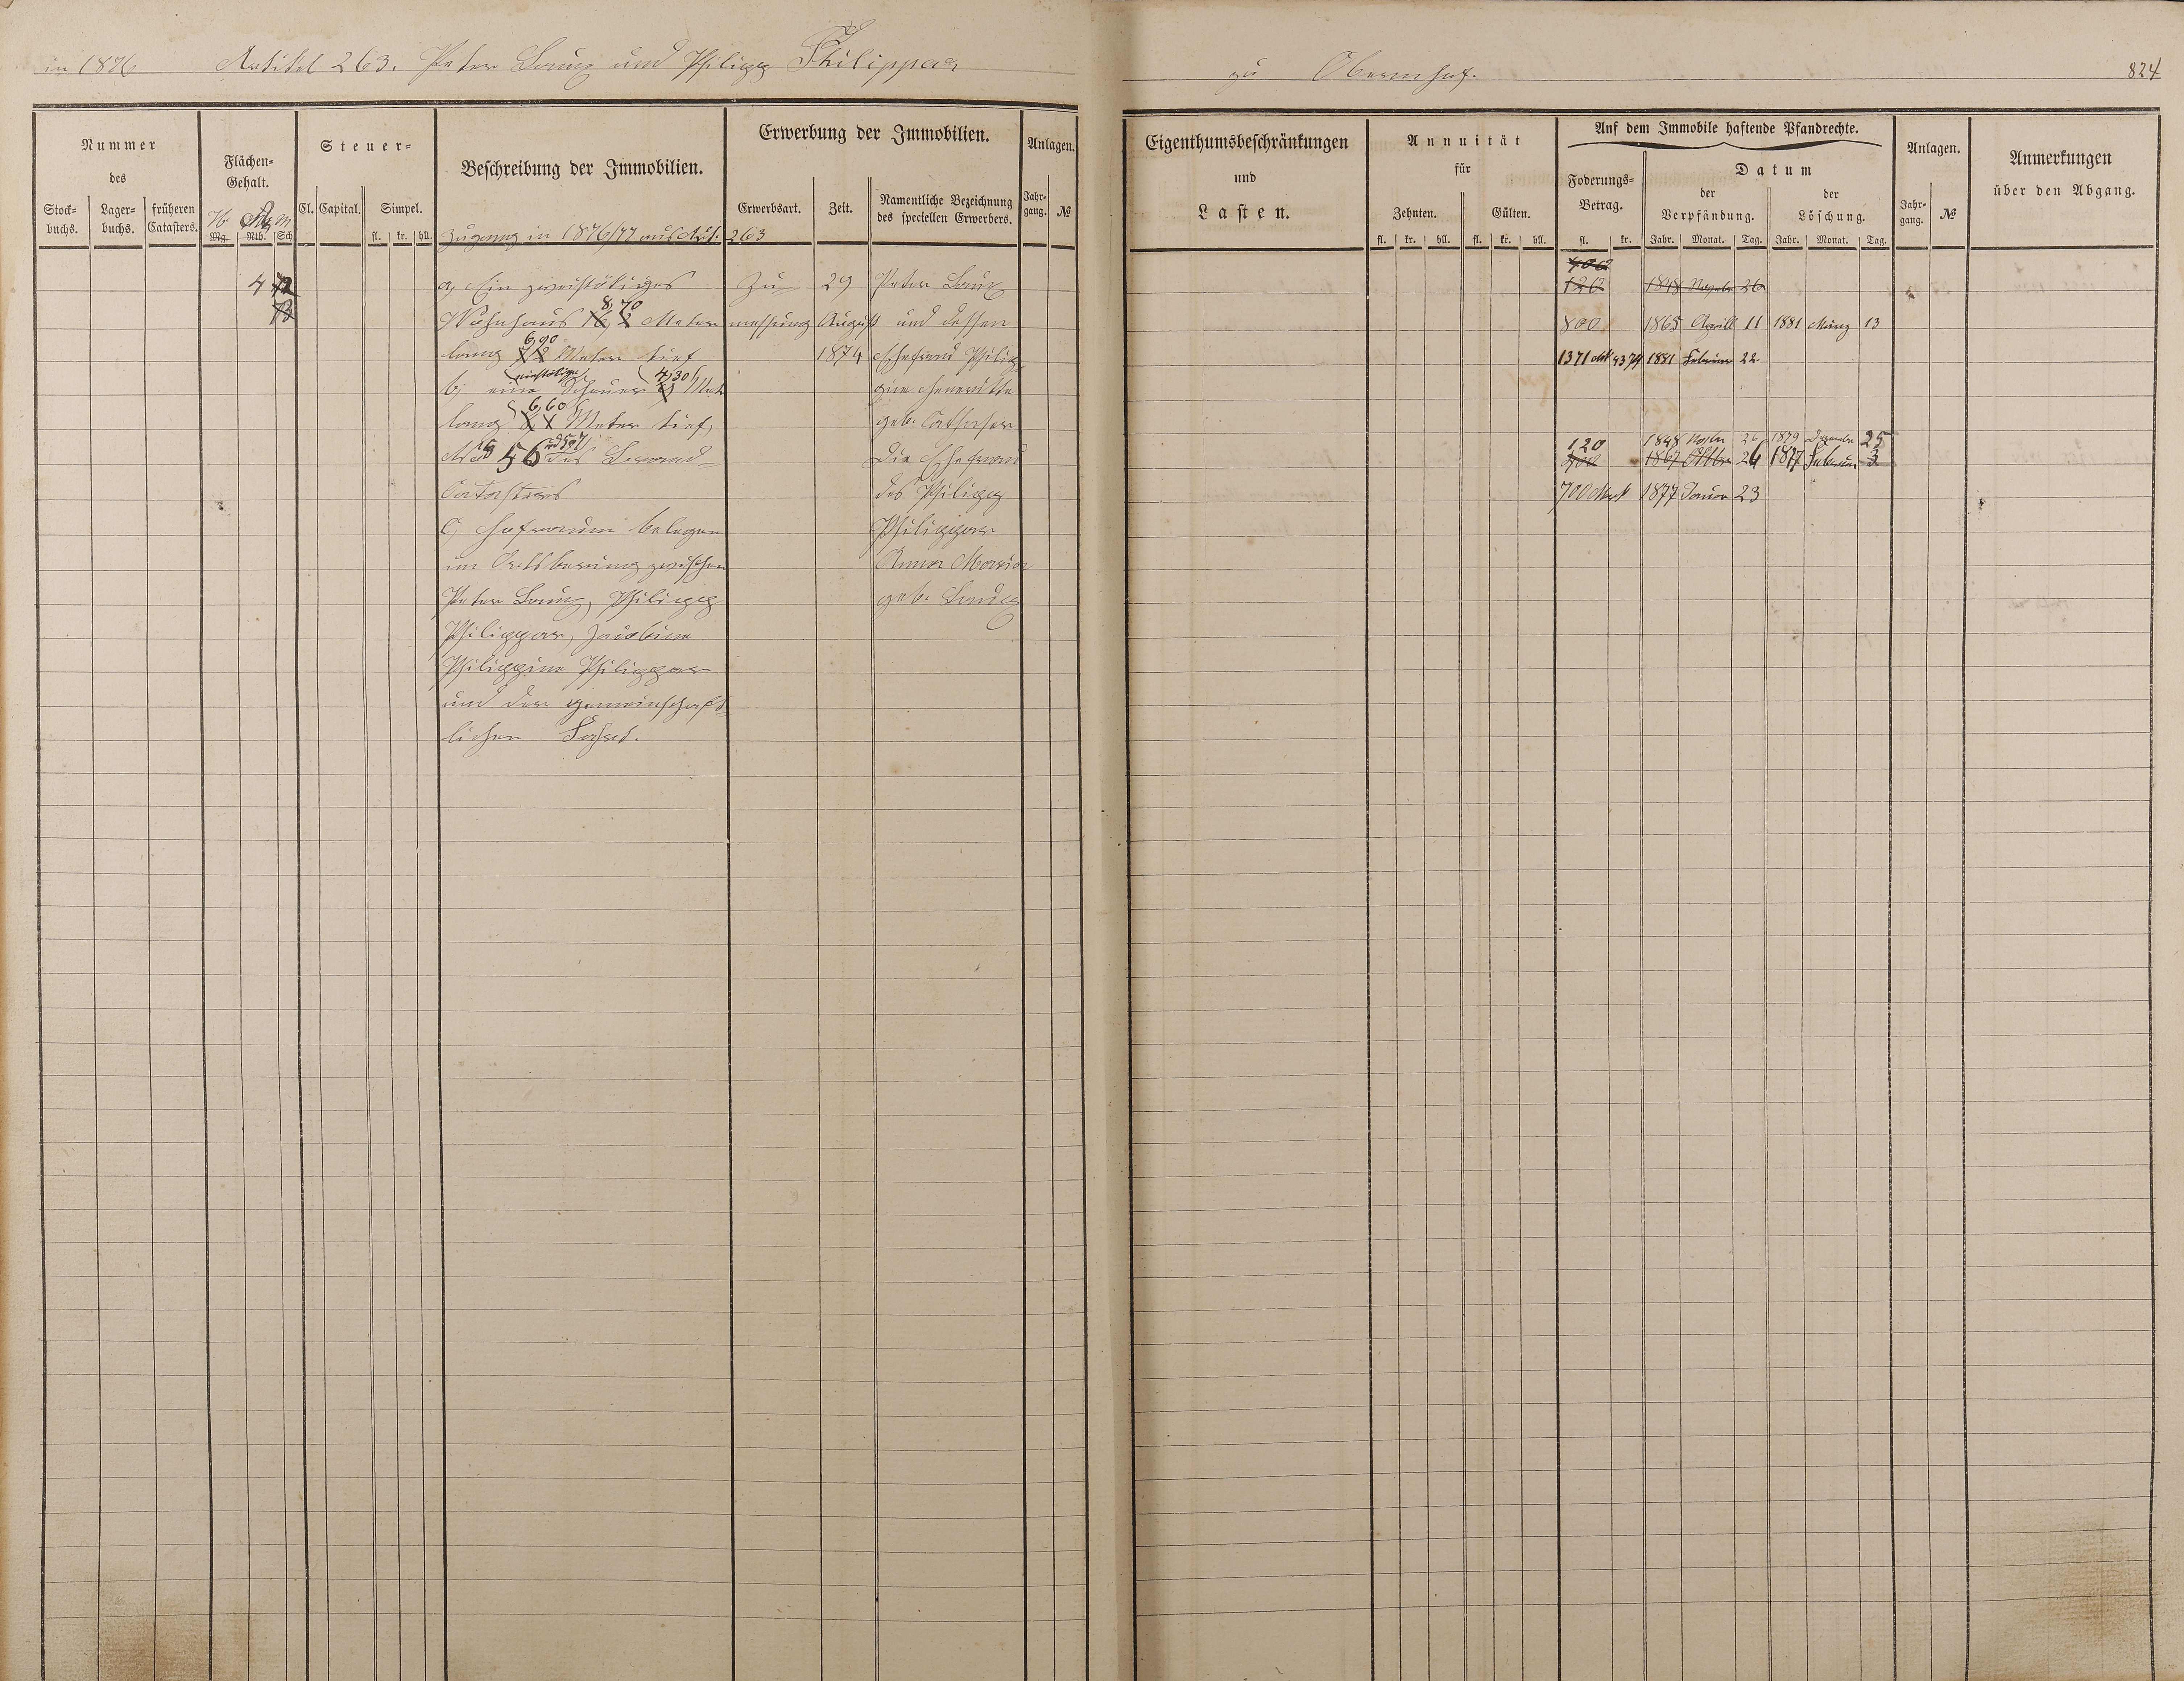 in 1876 Artikel 263. Peter Lang und Philipp Philippar
zu Obernhof. 824
Nummer
des
Stock-
buchs.
Lager-
buchs.
früheren
Catasters.
Flächen-
Gehalt.
Mg. Rth. Sch
Steuer-
Cl. Capital. Simpel.
fl. kr. hll.
Beschreibung der Immobilien.
Erwerbung der Immobilien.
Erwerbsart. Zeit.
Namentliche Bezeichnung
des speciellen Erwerbers.
Anlagen.
Jahr-
gang. №
Eigenthumsbeschränkungen
und
Lasten.
Annuität
für
Zehnten. Gülten.
fl. kr. hll. fl. kr. hll.
Auf dem Immobile haftende Pfandrechte.
Foderungs-
Betrag.
fl. kr.
Datum
der
Verpfändung.
der
Löschung.
Jahr. Monat. Tag. Jahr. Monat. Tag.
Anlagen.
Jahr-
gang. №
Anmerkungen
über den Abgang.
Zugang in 1876/77 aus Art. 263
4 72
a, Ein zweistökiges
Wohnhaus 8,70 Meter
lang 6,90 Meter tief
b, eine einstökige Scheuer 4,30 Met
lang 6,60 Meter tief,
No 56 des Brand-
Catasters
c, Hofraum belegen
im Ortsbering zwischen
Peter Lang, Philipp
Philippar, Jacobine
Philippine Philippar
und der gemeinschaft-
lichen
Zu-
messung
29
August
1874
Peter Lang
und dessen
Ehefrau Philip-
pine Henriette
geb.
Die Ehefrau
des Philipp
Philippar
Anna Maria
geb. Lang
1848 26
800 1865 Aprill 11 1881 März 13
1371 Mk 4374 1881 Februar 22.
120 1848 26 1879 Dezember 25
1867 Oktbr 26 1877 Februar 3
700 Mark 1877 Januar 23